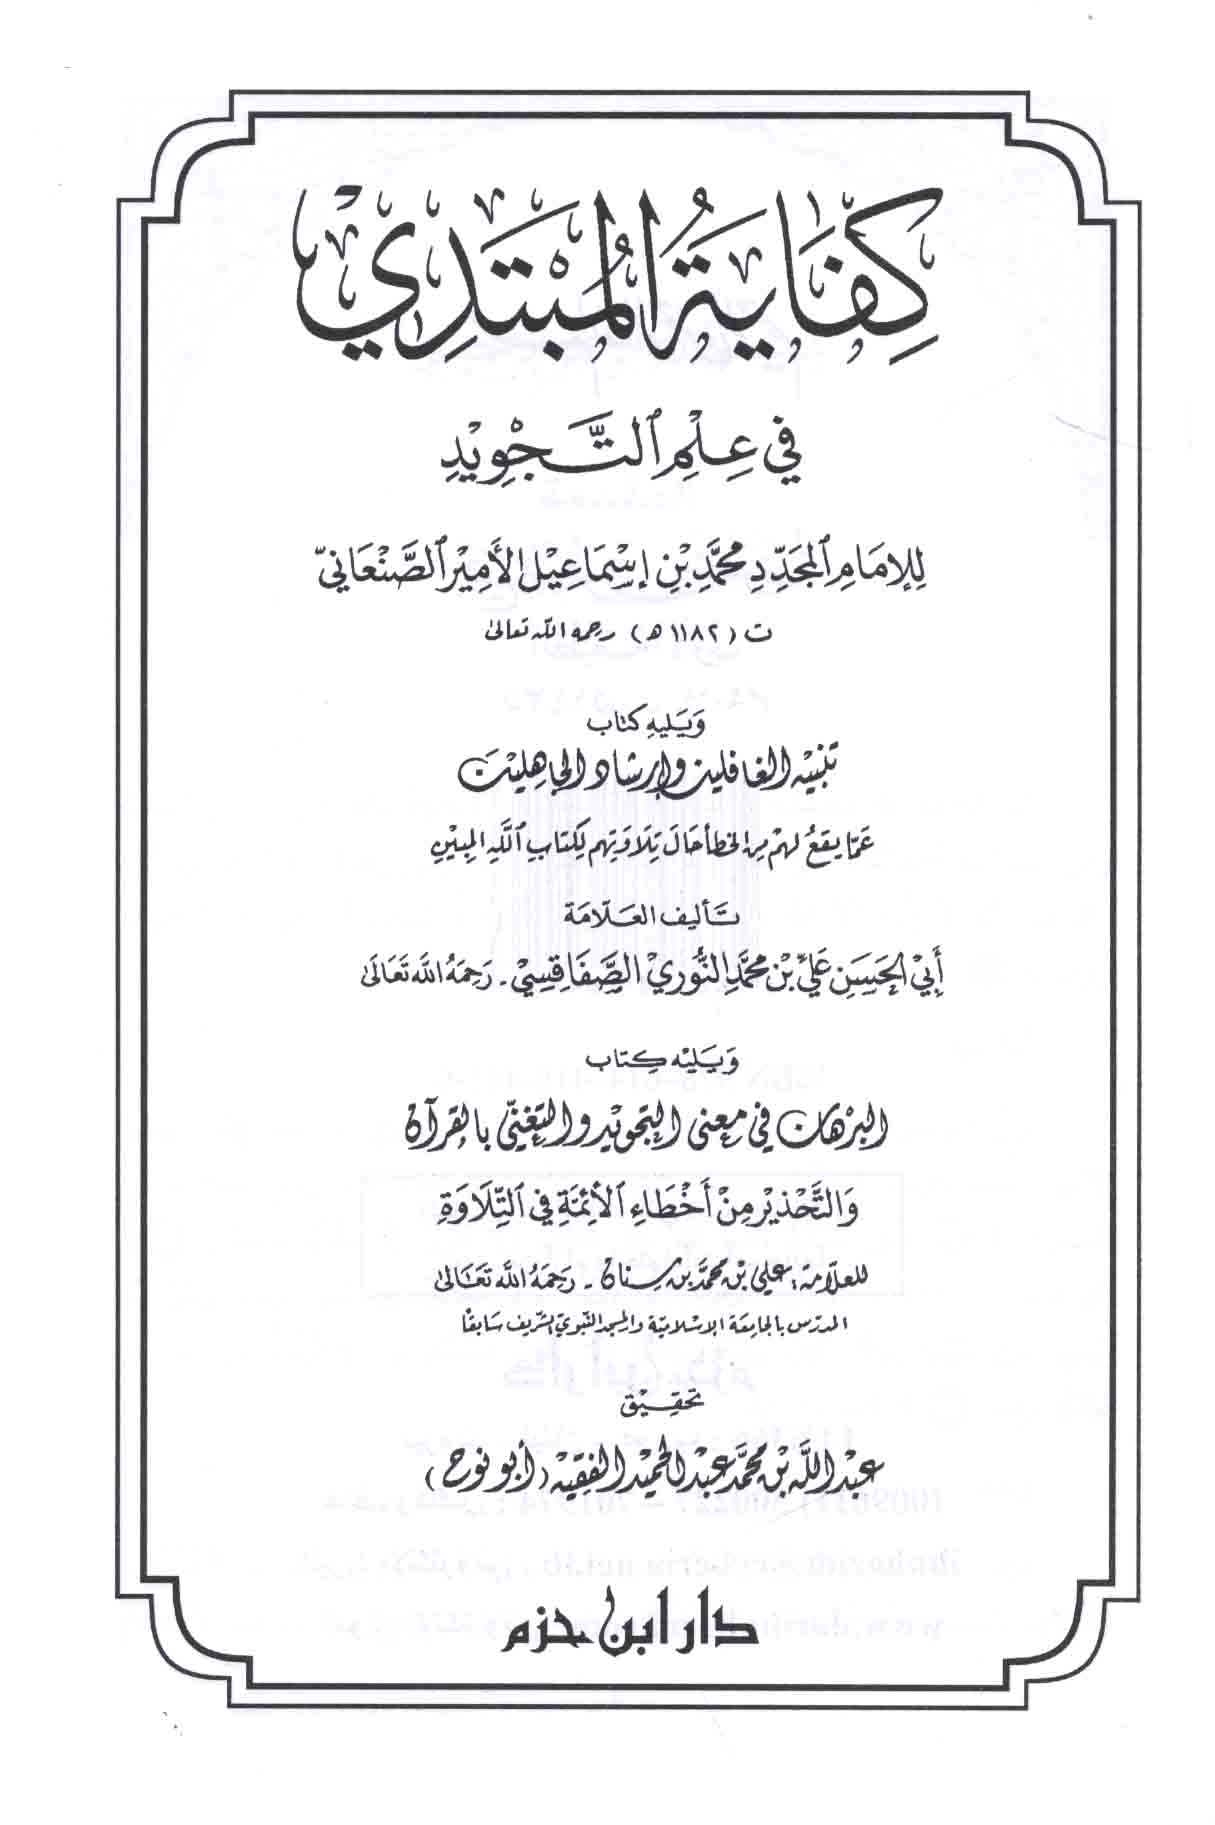 كِفَايَةُ المُبْتَدِيْ
فِي عِلْمِ ٱلتَّجْوِيْدِ
لِلإمَامِ ٱلمُجَدِّدِ مُحَمَّدِ بْنِ إِسْمَاعِيْل الأَمِيْر ٱلصَّنْعَانيّ
ت (١١٨٢ هـ) رحمه الله تعالى
وَيَليهِ كتاب
تنبيه الغافلين وإرشاد الجاهلين
عَمّا يقعُ لهمْ مِن الخطأ حَالَ تِلَاوَتِهم لِكتَابِ ٱللَّهِ المبِيْنِ
تَأليف العَلّامَة
أَبِي الحَسَن عَليّ بْن مُحَمَّد النُّوْرِيْ الصَّفَاقِسِيْ - رَحِمَهُ اللَّه تَعَالَى
وَيَليْه كِتاب
البُرْهَان فِي مَعْنى التجْويْد والتغَنّي بالقُرآن
وَالتَّحْذِيْر مِنْ أَخْطَاءِ ٱلأَئِمَّةِ فِي ٱلتِّلَاوَةِ
للعلّامة: علي بْن مُحَمَّد بْن سِنان - رَحِمَهُ اللَّه تعَالى
المدرّس بالجامِعَة الإسْلاميّة والمسجد النّبويّ الشّريف سَابقًا
تحقِيْق
عَبْد اللَّه بْن مُحَمَّد عَبْد الحَمِيْد الفَقِيْه (أبو نوح)
دار ابن حزم